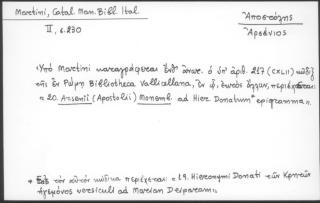 Martini, Catal. Man. Bibl. Ital.
II, σ. 230
Ἀποστόλης
Ἀρσένιος
«Ὑπό Martini καταγράφεται ἐνθ' ἀνωτ. ὁ ὑπ' ἀριθ. 217 (CXLII) κῶδιξ
τῆς ἐν Ρώμῃ Bibliotheca Vallicellana, ἐν ᾧ, ἐκτός ἄλλων, περιέχεται:
«20. Arsenii (Apostolii) Monemb. ad Hier. Donatum epigramma».
τόν αὐτόν κώδικα περιέχεται: «19. Hieronymi Donati τῶν Κρητῶν
ἁρμόνος versiculi ad Mariam Deiparam».